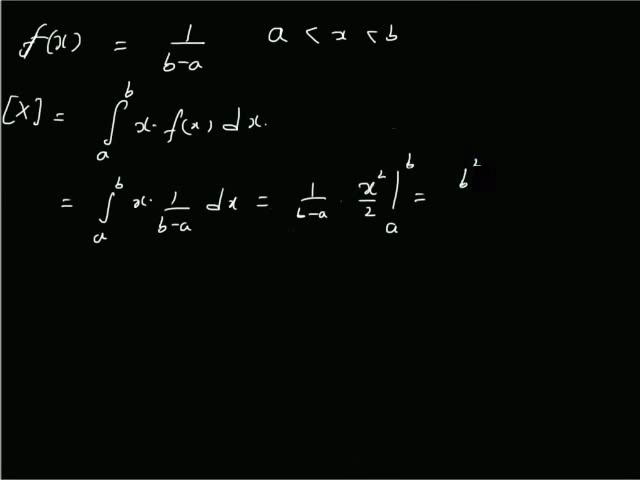 f(x) = 1/(b-a) a < x < b
[X] = ∫_a^b x · f(x) dx.
= ∫_a^b x · 1/(b-a) dx = 1/(b-a) · x²/2 |_a^b = b²